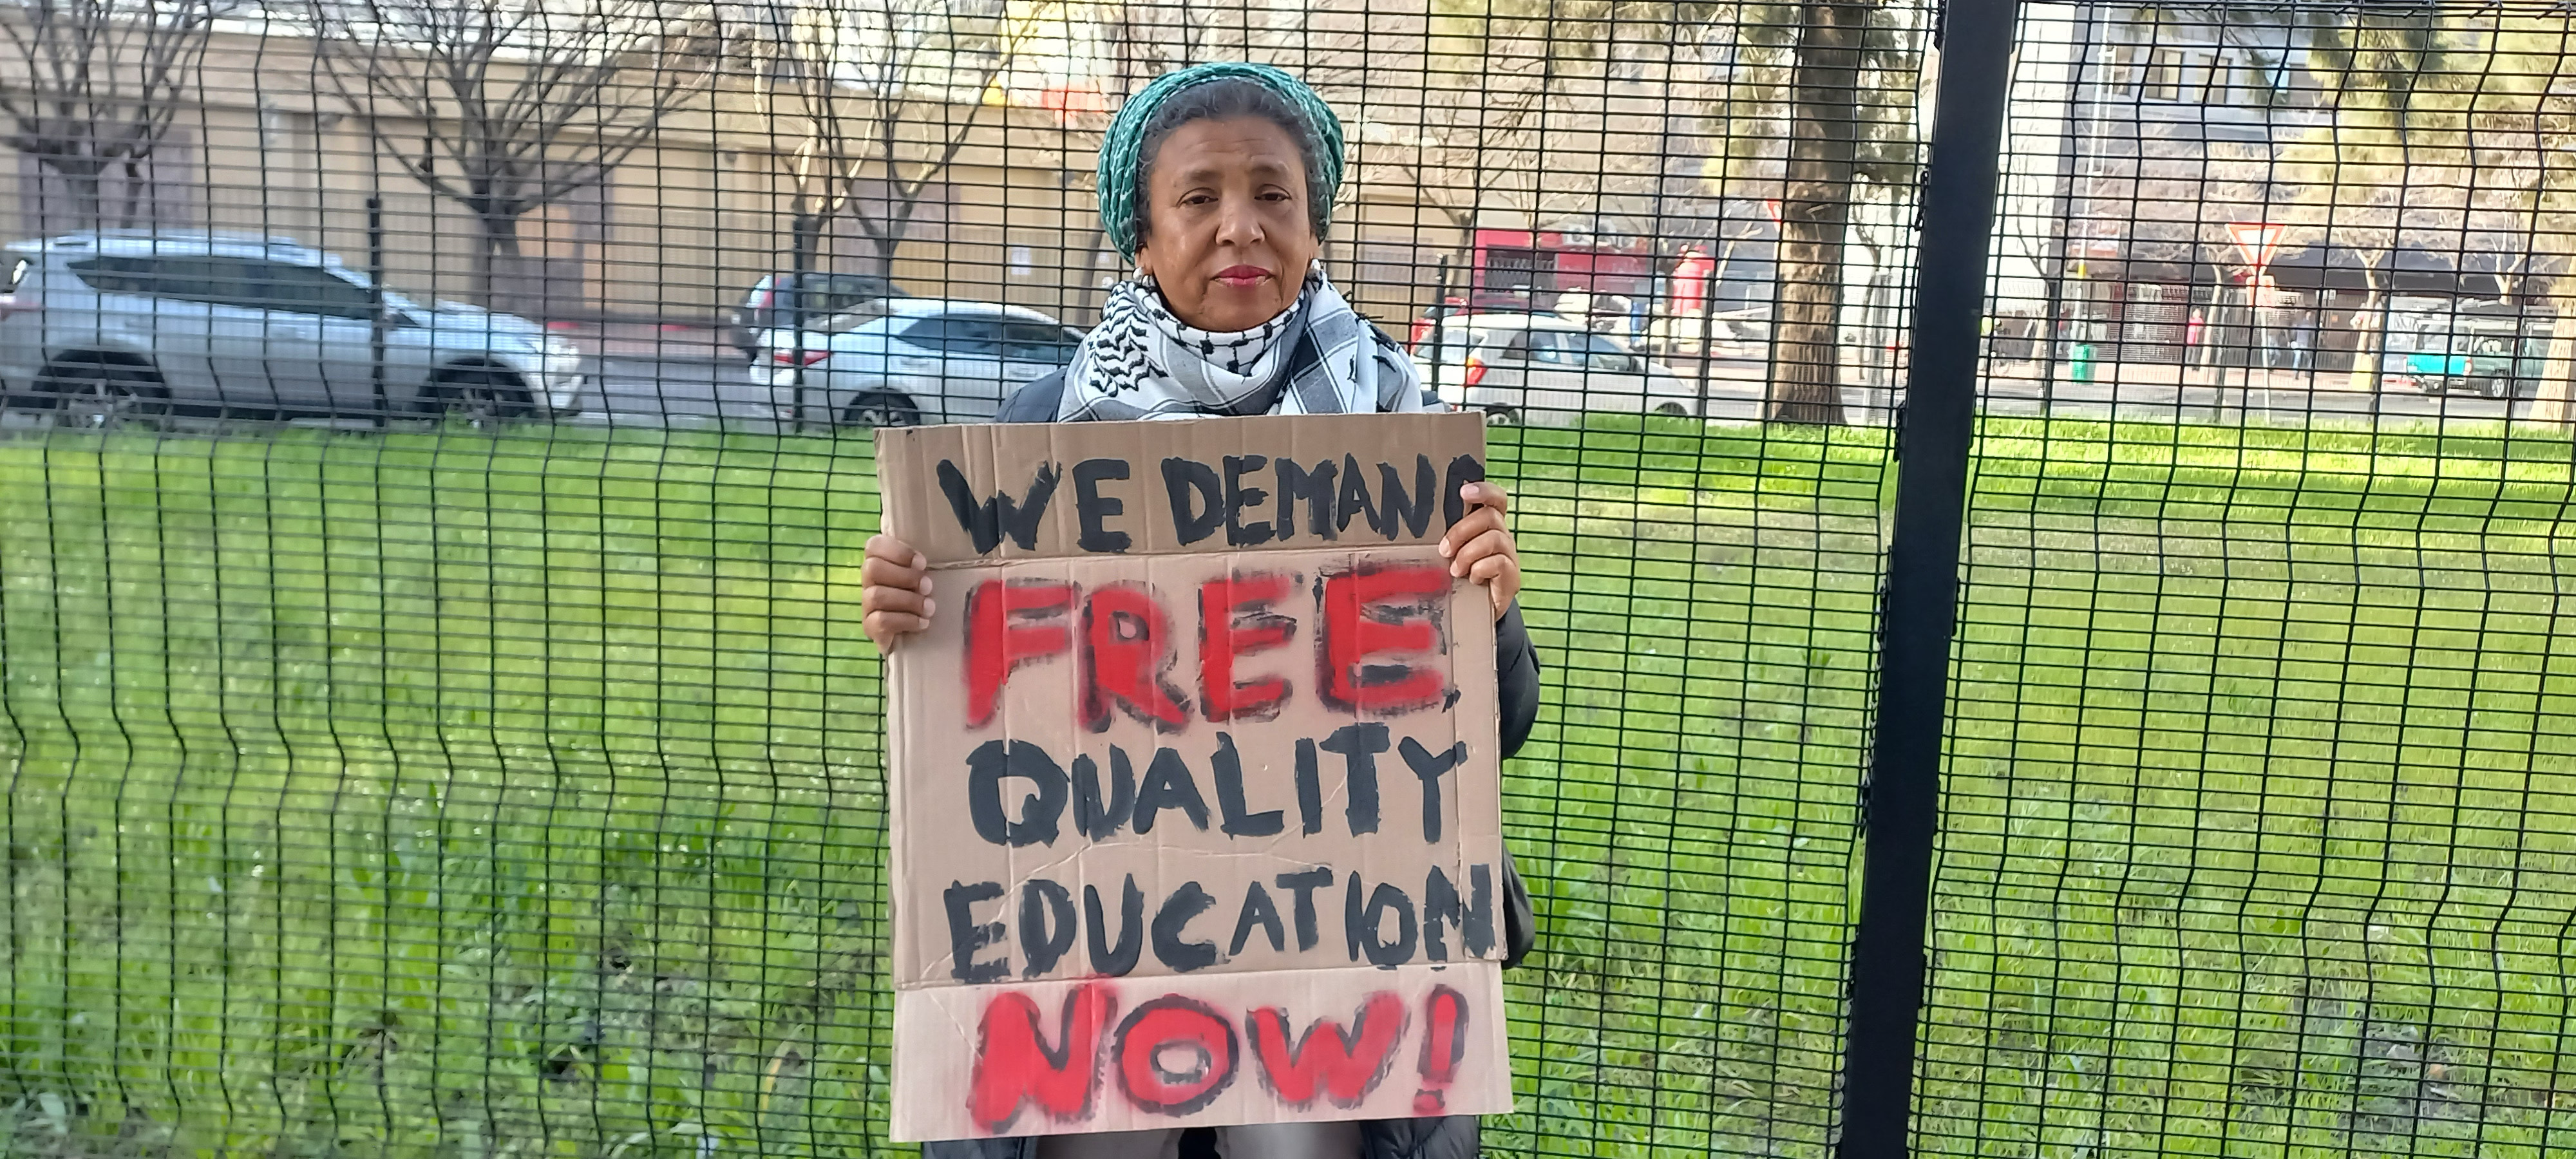 WE DEMAND
FREE
QUALITY
EDUCATION
NOW!